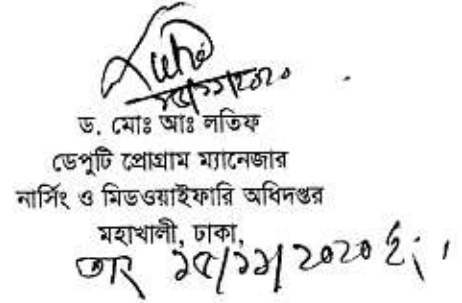 ১৫/১১/২০২০
ড. মোঃ আঃ লতিফ
ডেপুটি প্রোগ্রাম ম্যানেজার
নার্সিং ও মিডওয়াইফারি অধিদপ্তর
মহাখালী, ঢাকা,
তাং ১৫/১১/২০২০ ইং ।